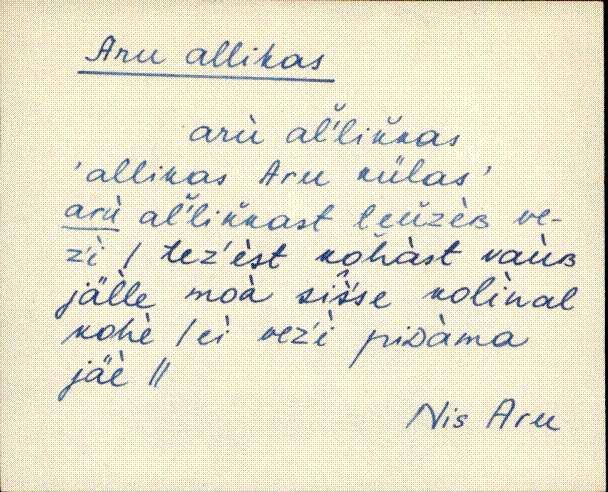 Aru allikas
arù al̆'lik̆kas
'allikas Aru külas'
arù al̆'lik̆kast leŭzèʙ ve-
z'ì / tez'èst kŏhàst vaùʙ
jäl̀le moà sis̆'se kolìnal
kohè / eì vez'ì piᴅàma
jäè //
Nis Aru